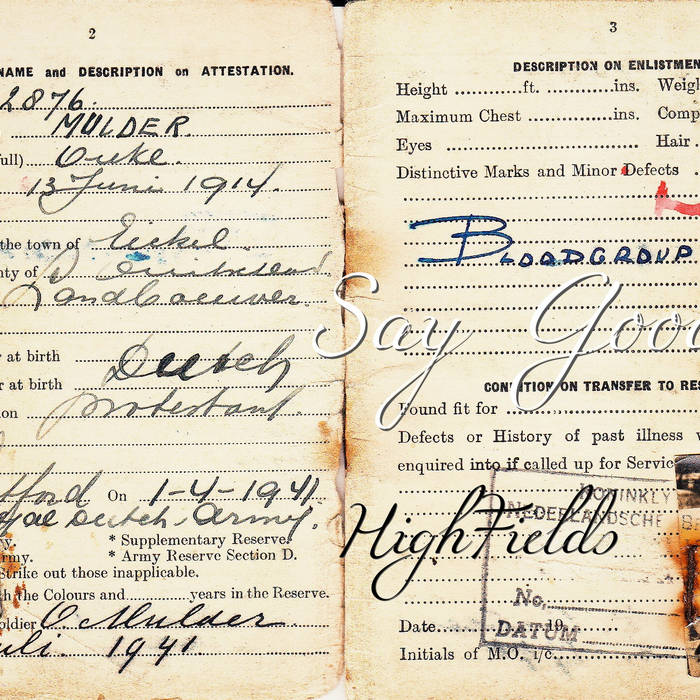 2
NAME and DESCRIPTION on ATTESTATION.
2876.
MULDER.
full) Ouke.
13 Juni 1914.
the town of Eickel.
nty of Duitschland
Landbouwer
r at birth
r at birth Dutch
on protestant.
fford On 1-4-1941
Dutch-Army.
y. * Supplementary Reserve.
rmy. * Army Reserve Section D.
Strike out those inapplicable.
th the Colours and years in the Reserve.
oldier O Mulder
uli. 1941.
3
DESCRIPTION ON ENLISTMEN
Height ft. ins. Weigh
Maximum Chest ins. Comp
Eyes Hair
Distinctive Marks and Minor Defects
BLOODGROUP
Say Goo
CONDITION ON TRANSFER TO RES
Found fit for
Defects or History of past illness w
enquired into if called up for Servic
KONINKLY
NEDERLANDSCHE B
HighFields
No.
Date 19
DATUM
Initials of M.O. i/c.